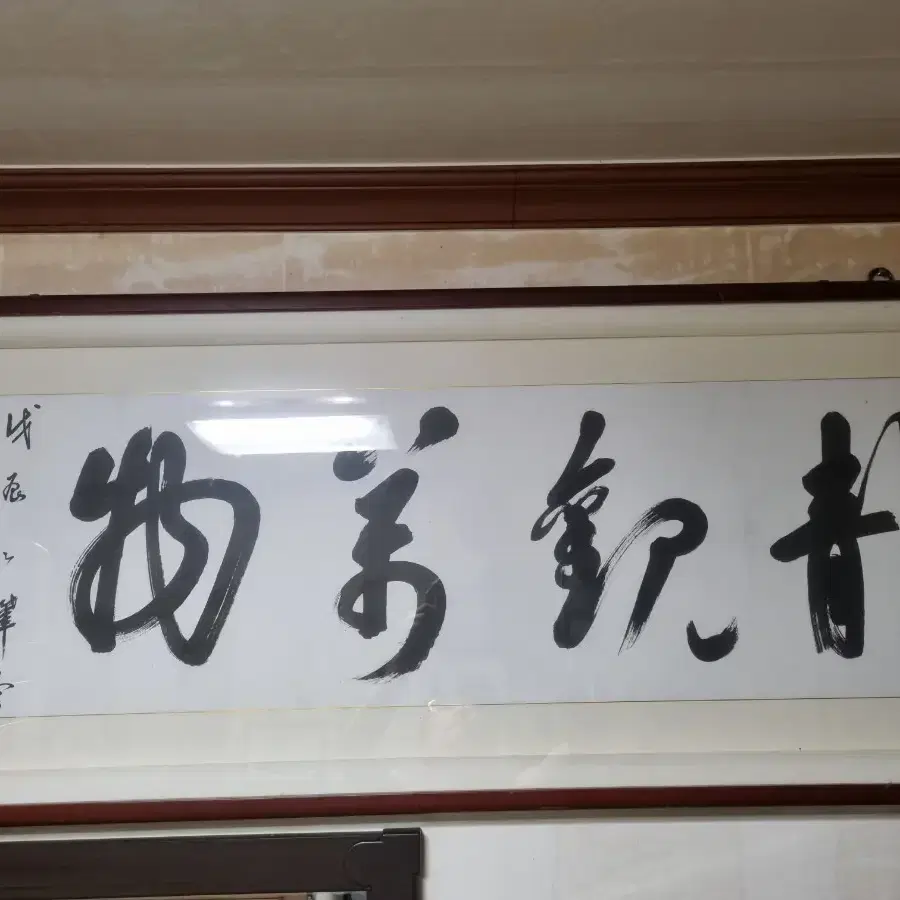 靜觀萬物
戊辰